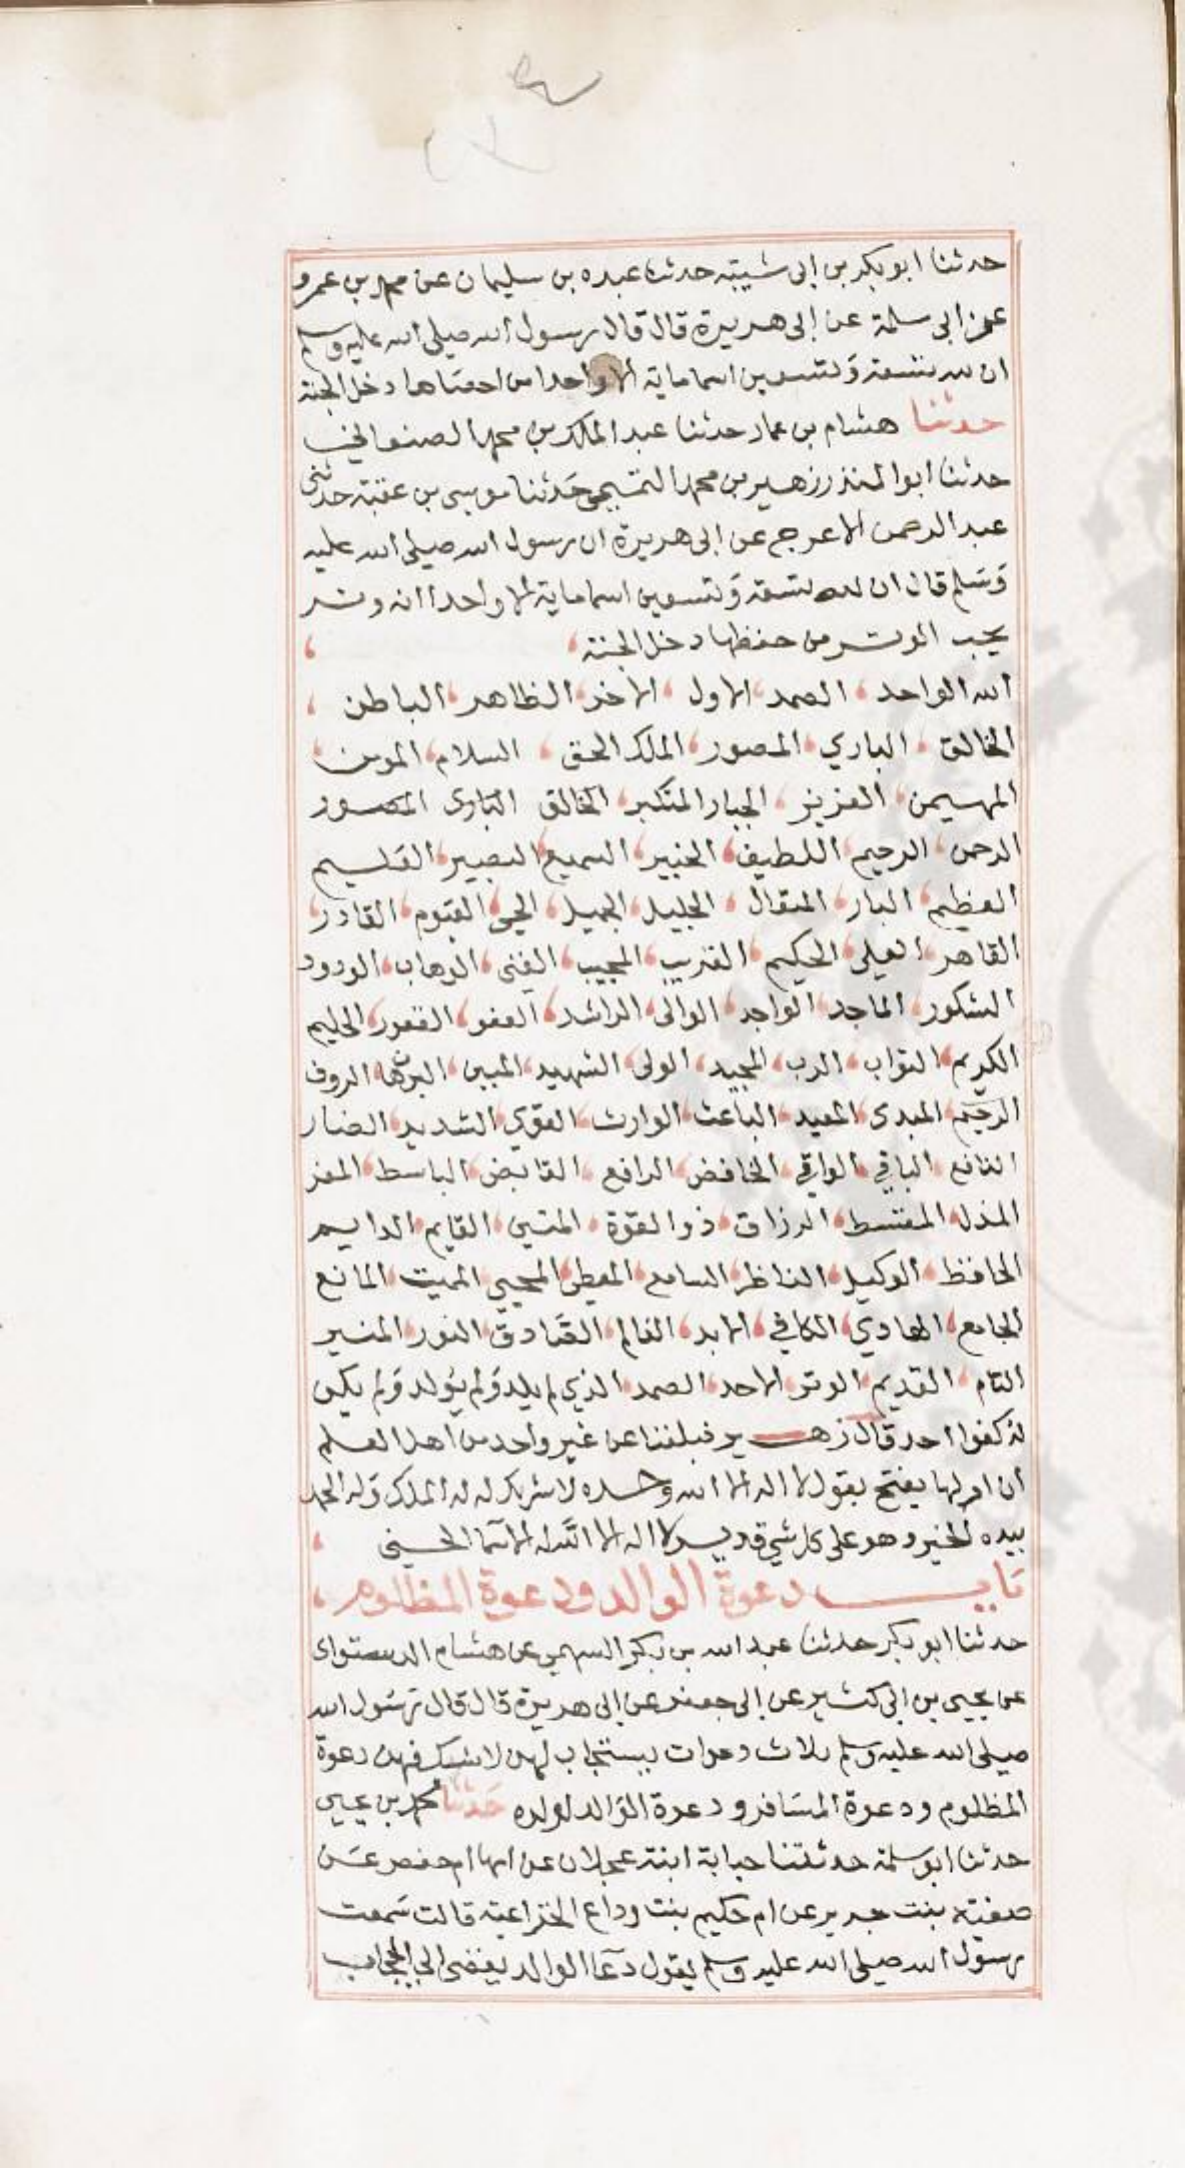 حدثنا ابو بكر بن ابى شيبة حدثنا عبده بن سليمان عن محمد بن عمرو
عن ابى سلمة عن ابى هريرة قال قال رسول الله صلى الله عليه وسلم
ان لله تسعة وتسعين اسما ماية الا واحدا من احصاها دخل الجنة
حدثنا هشام بن عمار حدثنا عبد الملك بن محمد الصنعاني
حدثنا ابو المنذر زهير بن محمد التميمي حدثنا موسى بن عقبة حدثنى
عبد الرحمن الاعرج عن ابى هريرة ان رسول الله صلى الله عليه
وسلم قال ان لله تسعة وتسعين اسما ماية الا واحدا انه وتر
يحب الوتر من حفظها دخل الجنة
الله الواحد الصمد الاول الاخر الظاهر الباطن
الخالق الباري المصور الملك الحق السلام المومن
المهيمن العزيز الجبار المتكبر الخالق البارى المصور
الرحمن الرحيم اللطيف الخبير السميع البصير العليم
العظيم البار المتعال الجليل الجميل الحي القيوم القادر
القاهر العلى الحكيم القريب المجيب الغنى الوهاب الودود
الشكور الماجد الواجد الوالى الراشد العفو الغفور الحليم
الكريم التواب الرب المجيد الولى الشهيد المبين البرهان الروف
الرحيم المبدى المعيد الباعث الوارث القوي الشديد الضار
النافع الباقي الواقي الخافض الرافع القابض الباسط المعز
المذل المقسط الرزاق ذو القوة المتين القايم الدايم
الحافظ الوكيل الناظر السامع المعطى المحيي المميت المانع
الجامع الهادي الكافي الابد العالم الصادق النور المنير
التام القديم الوتر الاحد الصمد الذي لم يلد ولم يولد ولم يكن
له كفوا احد قال زهير فبلغنا عن غير واحد من اهل العلم
ان اولها يفتح بقول لا اله الا الله وحده لا شريك له له الملك وله الحمد
بيده الخير وهو على كل شي قدير لا اله الا الله له الاسما الحسنى
باب دعوة الوالد ودعوة المظلوم
حدثنا ابو بكر حدثنا عبد الله بن بكر السهمي عن هشام الدستواى
عن يحيى بن ابى كثير عن ابى جعفر عن ابى هريرة قال قال رسول الله
صلى الله عليه وسلم ثلاث دعوات يستجاب لهن لا شك فيهن دعوة
المظلوم ودعوة المسافر ودعوة الوالد لولده حدثنا محمد بن يحيى
حدثنا ابو سلمة حدثتنا حبابة ابنة عجلان عن امها ام حفص عن
صفية بنت جرير عن ام حكيم بنت وداع الخزاعية قالت سمعت
رسول الله صلى الله عليه وسلم يقول دعا الوالد يفضى الى الحجاب